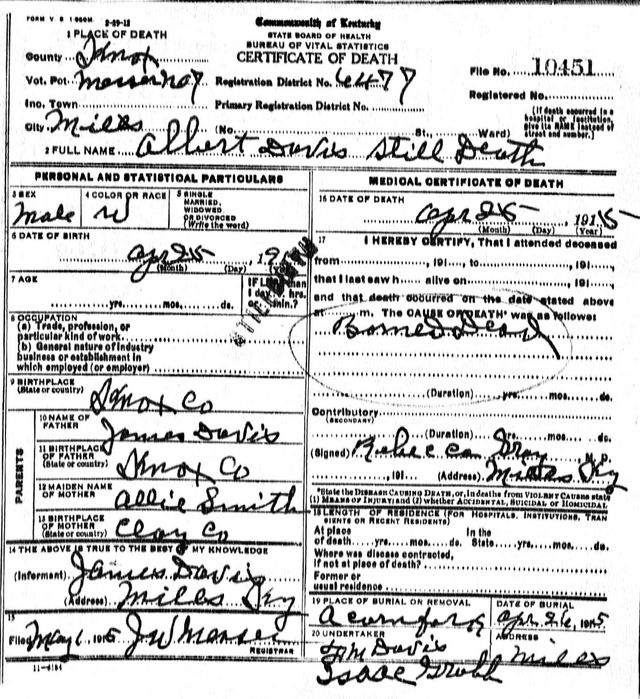 FORM V. S. 1-500M 2-29-12
Commonwealth of Kentucky
STATE BOARD OF HEALTH
BUREAU OF VITAL STATISTICS
CERTIFICATE OF DEATH
1 PLACE OF DEATH
County Knox
Vot. Pct.
Registration District No. 6477
File No. 10451
Inc. Town
Primary Registration District No.
Registered No.
City Mills (No. St., Ward)
(If death occurred in a hospital or institution, give its NAME instead of street and number.)
2 FULL NAME Albert Davis Still Death
PERSONAL AND STATISTICAL PARTICULARS
3 SEX Male
4 COLOR OR RACE W
5 SINGLE, MARRIED, WIDOWED OR DIVORCED (Write the word)
6 DATE OF BIRTH
Apr 25, 191
(Month) (Day) (Year)
7 AGE
yrs. mos. ds.
IF LESS than 1 day, hrs. or min.?
STILLBIRTH
8 OCCUPATION
(a) Trade, profession, or particular kind of work
(b) General nature of industry business or establishment in which employed (or employer)
9 BIRTHPLACE (State or country) Knox Co
PARENTS
10 NAME OF FATHER James Davis
11 BIRTHPLACE OF FATHER (State or country) Knox Co
12 MAIDEN NAME OF MOTHER Allie Smith
13 BIRTHPLACE OF MOTHER (State or country) Clay Co
14 THE ABOVE IS TRUE TO THE BEST OF MY KNOWLEDGE
(Informant) James Davis
(Address) Mills Ky
15
Filed May 1, 1915 J W
REGISTRAR
11-3184
MEDICAL CERTIFICATE OF DEATH
16 DATE OF DEATH
Apr 25, 1915
(Month) (Day) (Year)
17 I HEREBY CERTIFY, That I attended deceased
from, 191, to, 191
that I last saw h alive on, 191
and that death occurred on the date stated above
at m. The CAUSE OF DEATH* was as follows:
Borned Dead
(Duration) yrs. mos. ds.
Contributory (SECONDARY)
(Duration) yrs. mos. ds.
(Signed) Rebecca Gray M. D.
, 191 (Address) Mills Ky
*State the DISEASE CAUSING DEATH, or, in deaths from VIOLENT CAUSES state (1) MEANS OF INJURY; and (2) whether ACCIDENTAL, SUICIDAL or HOMICIDAL
18 LENGTH OF RESIDENCE (FOR HOSPITALS, INSTITUTIONS, TRANSIENTS OR RECENT RESIDENTS)
At place of death yrs. mos. ds. In the State yrs. mos. ds.
Where was disease contracted, if not at place of death?
Former or usual residence
19 PLACE OF BURIAL OR REMOVAL
Acorn fork
DATE OF BURIAL
Apr 26, 1915
20 UNDERTAKER
Davis
Isaac
ADDRESS
Mills